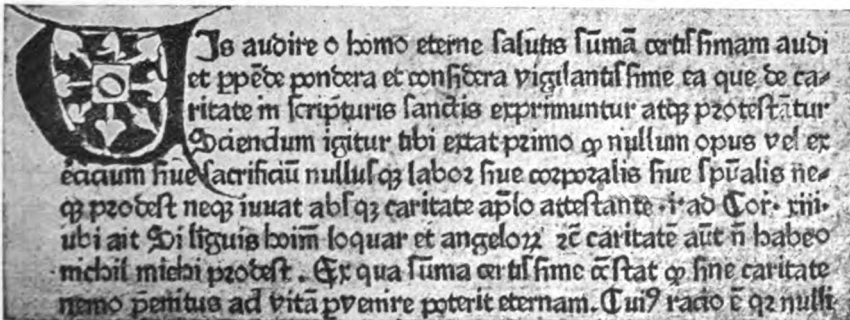 VIs audire o homo eterne salutis sūmā certissimam audi
et ꝑpēde pondera et considera vigilantissime ea que de ca⸗
ritate in scripturis sanctis exprimuntur atqꝫ protestātur
Sciendum igitur tibi extat primo ꝙ nullum opus vel ex
ercicium siue sacrificiū nullusqꝫ labor siue corporalis siue spūalis ne⸗
qꝫ prodest neqꝫ iuuat absqꝫ caritate ap̄lo attestante ·i· ad Cor· xiii·
ubi ait Si līguis hoīm loquar et angeloꝝ ⁊c̄ caritatē aūt n̄ habeo
nichil michi prodest . Ex qua sūma certissime cōstat ꝙ sine caritate
nemo pēnitus ad vitā ꝑvenire poterit eternam. Cuiꝰ racio ē qꝛ nulli